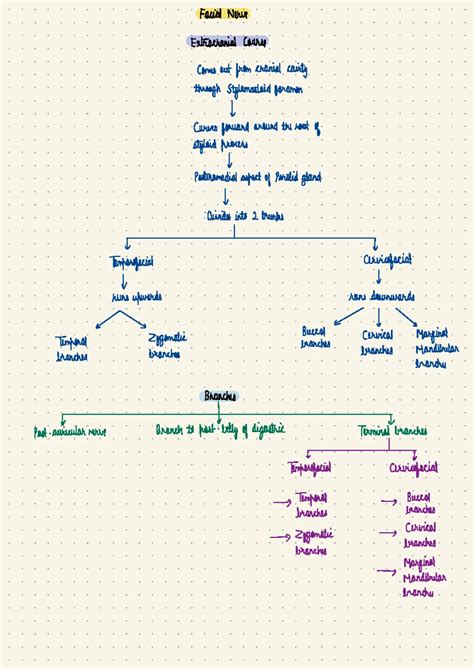 Facial Nerve
Extracranial Course
Comes out from cranial cavity
through Stylomastoid foramen
Curves forward around the root of
styloid process
Posteromedial aspect of Parotid gland
Divides into 2 trunks
Temporofacial
Cervicofacial
runs upwards
runs downwards
Temporal
branches
Zygomatic
branches
Buccal
branches
Cervical
branches
Marginal
Mandibular
branches
Branches
Post-auricular nerve
Branch to post. belly of digastric
Terminal branches
Temporofacial
Cervicofacial
Temporal
branches
Zygomatic
branches
Buccal
branches
Cervical
branches
Marginal
Mandibular
branches